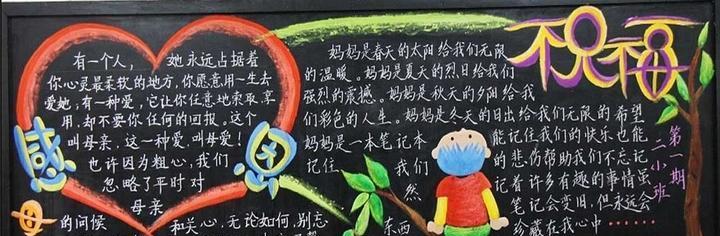 感恩
母
有一个人，她永远占据着
你心灵最柔软的地方，你愿意用一生去
爱她；有一种爱，它让你任意地索取享
用，却不要你任何的回报。这个
叫母亲，这一种爱，叫母爱！
也许因为粗心，我们
忽略了平时对
母亲
的问候 和关心，无论如何，别忘
祝福
妈妈是春天的太阳给我们无限
的温暖。妈妈是夏天的烈日给我们
强烈的震撼。妈妈是秋天的夕阳给我
们彩色的人生。妈妈是冬天的日出给我们无限的希望
妈妈是一本笔记本 能记住我们的快乐也能
记住 我们 的悲伤帮助我们不忘记
然 记着许多有趣的事情虽
笔记会变旧，但永远会
东西 珍藏在我心中……
第一期
二小班